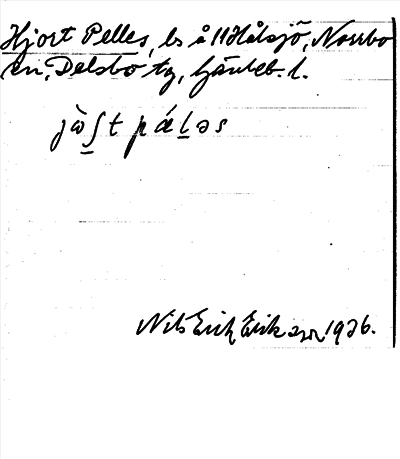 Hjort Pelles, ls å 11 Hålsjö, Norrbo
sn, Delsbo tg, Gävleb. l.
jὼʃt pǽləs
Nils Erik Eriksson 1926.